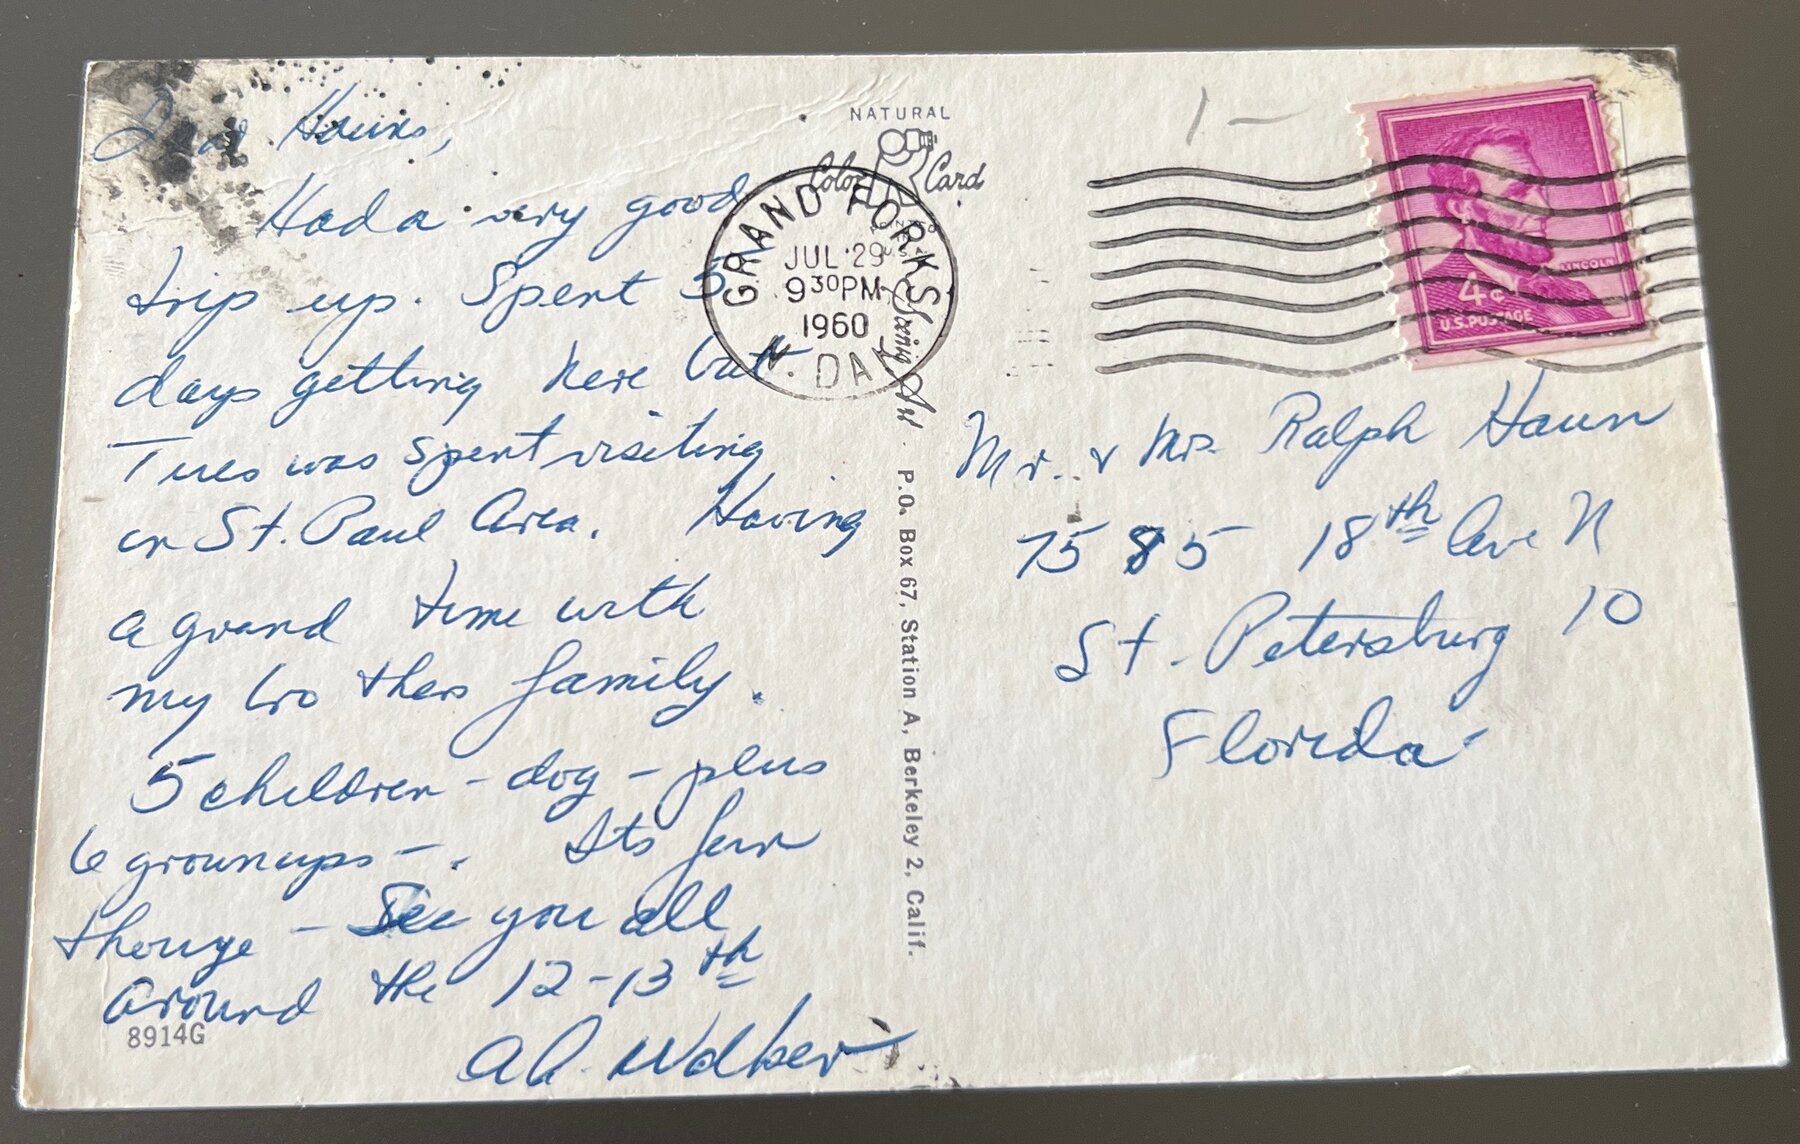 Dear Hauns,
Had a very good
trip up. Spent 5
days getting here but
Tues was spent visiting
in St. Paul Area. Having
a grand time with
my brothers family.
5 children - dog - plus
6 grownups -. Its fun
thouge - See you all
around the 12-13th
A.A. Walker
8914G
NATURAL
Color Card
GRAND FORKS
JUL 29
9 30 PM
1960
N. DAK
Scenic Art
P.O. Box 67, Station A, Berkeley 2, Calif.
1-
LINCOLN
4¢
U.S. POSTAGE
Mr. & Mrs. Ralph Haun
7585 18th Ave N
St. Petersburg 10
Florida